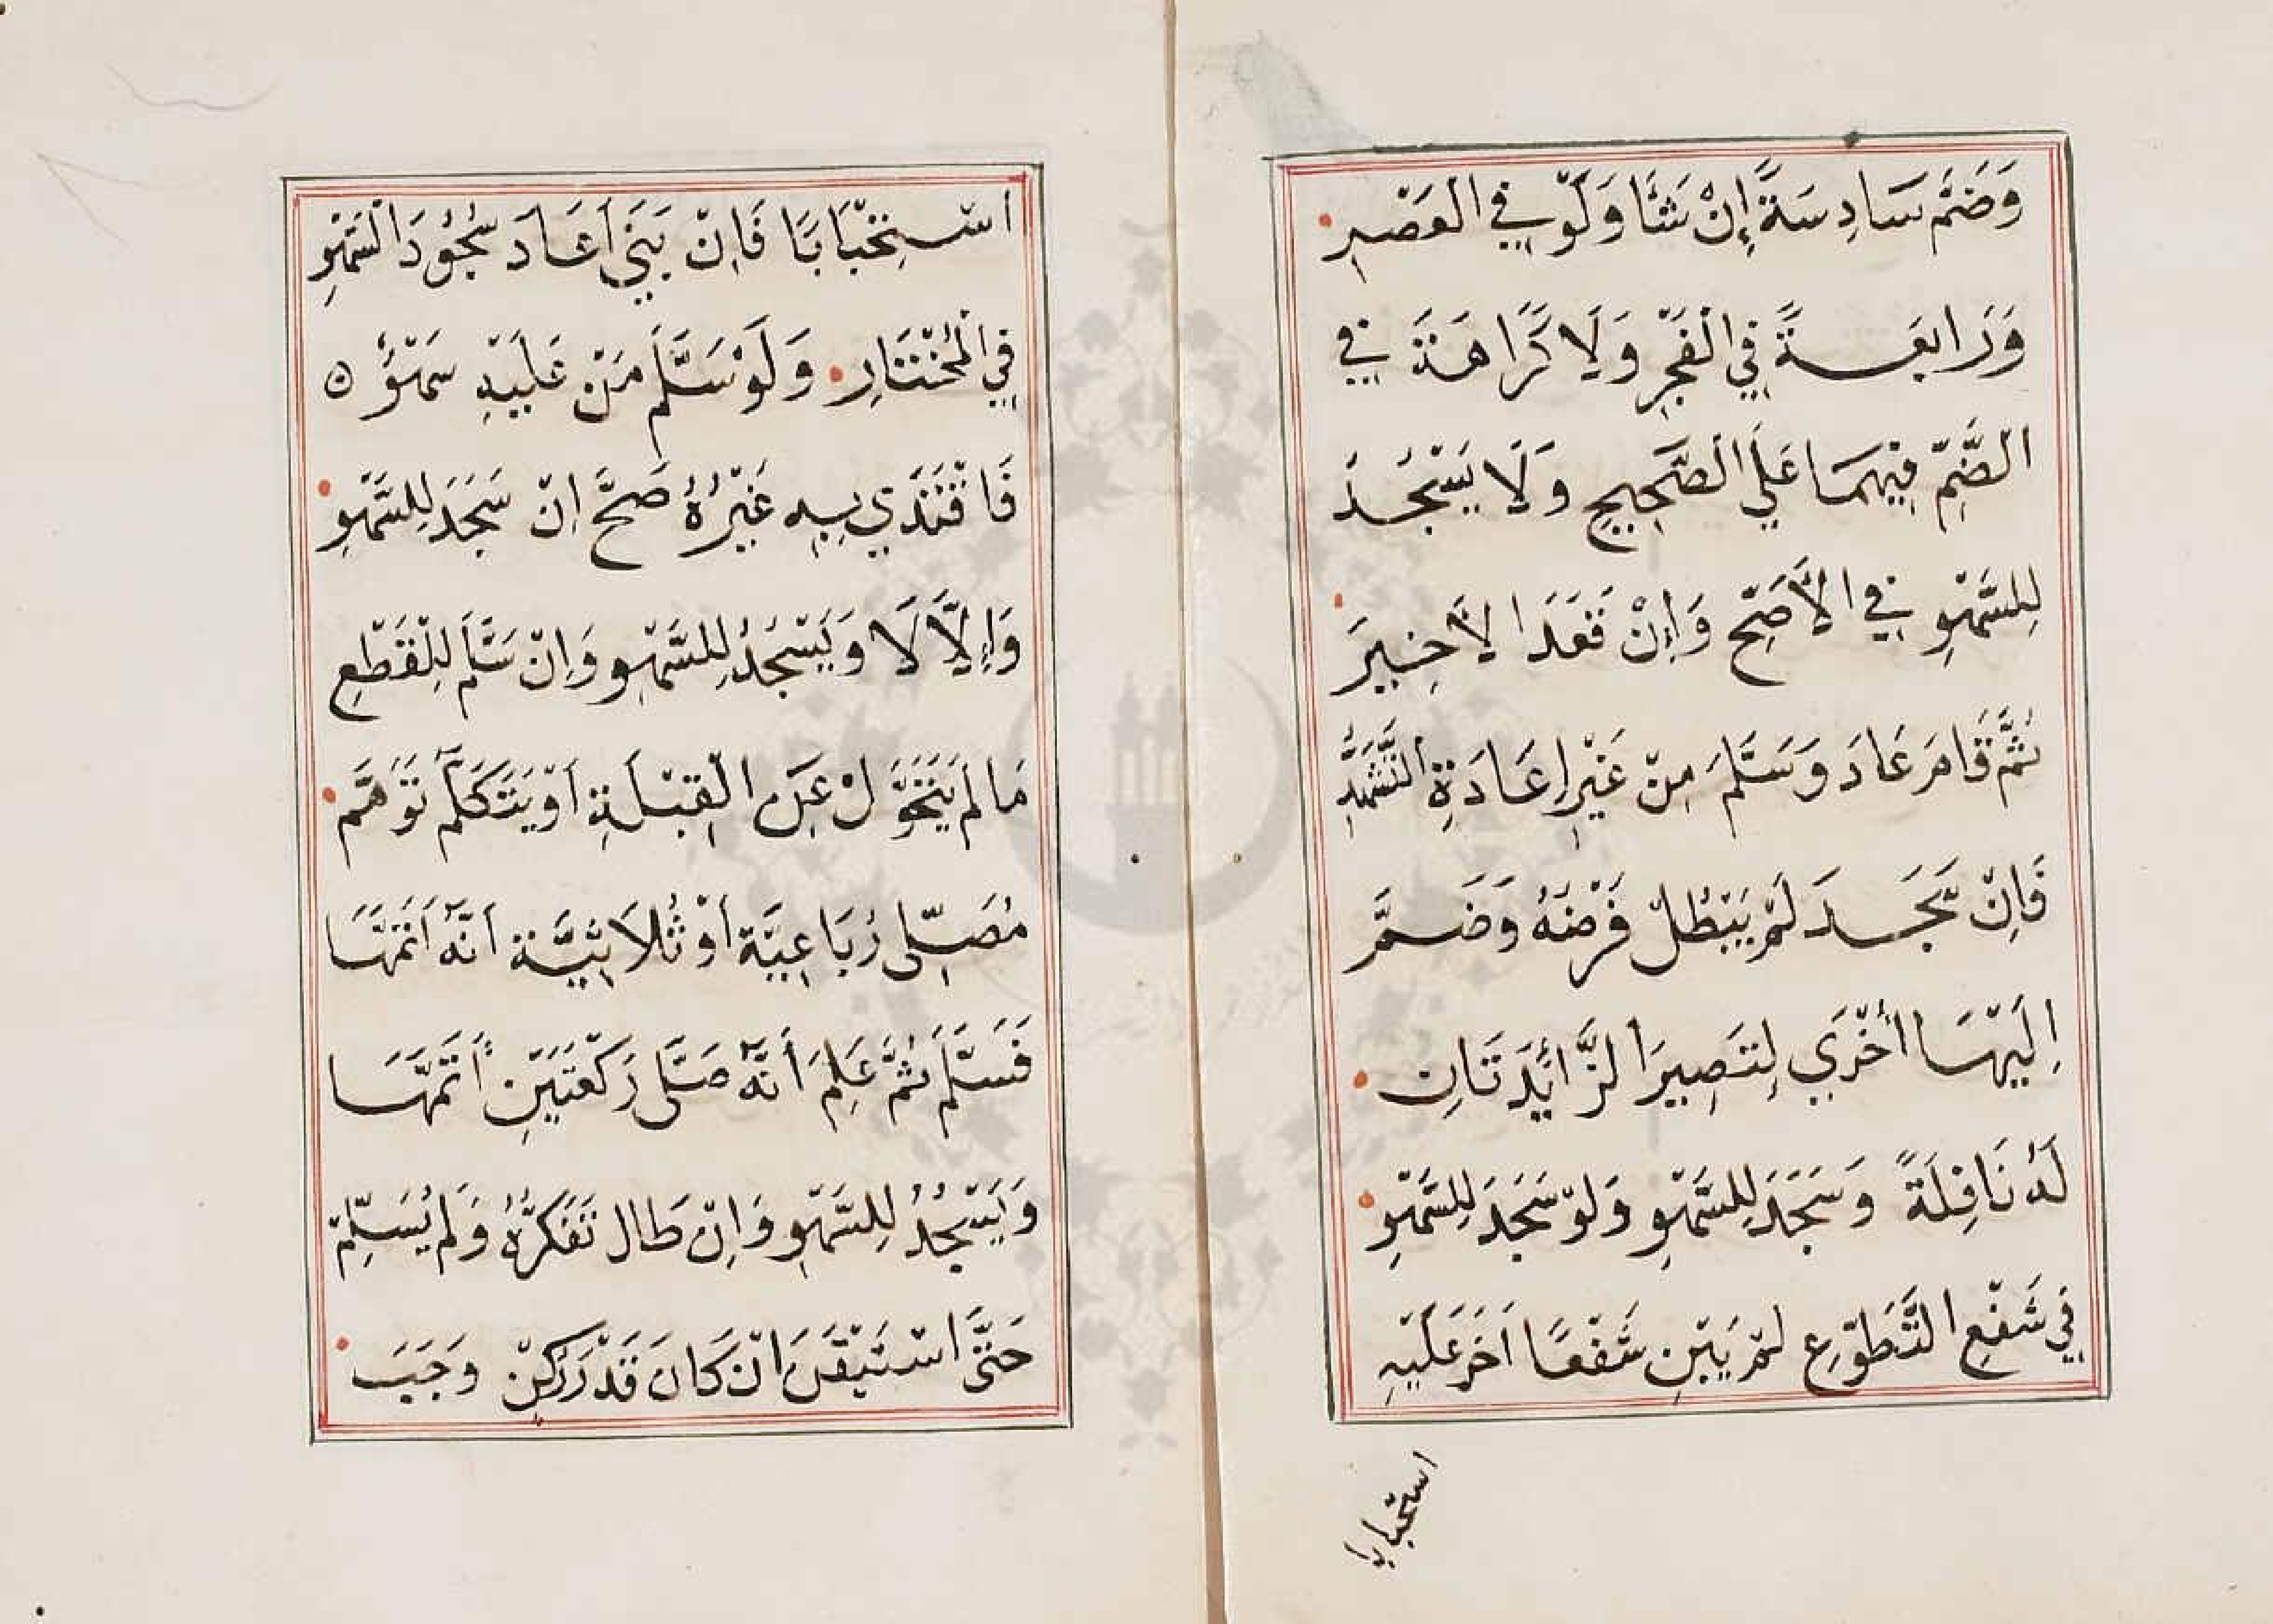 وَضَمَّ سَادِسَةً إِنْ شَاَ وَلَوْ فِي الْعَصْرِ
وَرَابِعَةً فِي الْفَجْرِ وَلَا كَرَاهَةَ فِي
الضَّمِّ فِيْهِمَا عَلَى الصَّحِيحِ وَلَا يَسْجُدُ
لِلسَّهْوِ فِي الْأَصَحِّ وَإِنْ قَعَدَ الْأَخِيرَ
ثُمَّ قَامَ عَادَ وَسَلَّمَ مِنْ غَيْرِ إِعَادَةِ التَّشَهُّدِ
فَاِنْ سَجَدَ لَمْ يَبْطُلْ فَرْضُهُ وَضَمَّ
اِلَيْهَا أُخْرَي لِتَصِيرَ الزَّائِدَتَانِ
لَهُ نَافِلَةً وَسَجَدَ لِلسَّهْوِ وَلَوْ سَجَدَ لِلسَّهْوِ
فِي شَفْعِ التَّطَوُّعِ لَمْ يَبْنِ شَفْعًا اَخَرَ عَلَيْهِ
استحبابا
اسْتِحْبَابًا فَاِنْ بَنَى أَعَادَ سُجُودَ السَّهْوِ
فِي الْمُخْتَارِ وَلَوْ سَلَّمَ مَنْ عَلَيْهِ سَهْوٌ ه
فَاقْتَدَي بِهِ غَيْرُهُ صَحَّ اِنْ سَجَدَ لِلسَّهْوِ
وَاِلَّا لَا وَيَسْجُدُ لِلسَّهْوِ وَاِنْ سَلَّمَ لِلْقَطْعِ
مَا لَمْ يَتَحَوَّلْ عَنِ الْقِبْلَةِ اَوْ يَتَكَلَّمْ تَوَهَّمَ
مُصَلِّى رُبَاعِيَّةٍ أَوْ ثُلَاثِيَّةٍ اَنَّهُ اَتَمَّهَا
فَسَلَّمَ ثُمَّ عَلِمَ أَنَّهُ صَلَّى رَكْعَتَيْنِ أَتَمَّهَا
وَيَسْجُدُ لِلسَّهْوِ وَاِنْ طَالَ تَفَكُّرُهُ وَلَمْ يُسَلِّمْ
حَتَّى اسْتَيْقَنَ اِنْ كَانَ قَدْرَ رُكْنٍ وَجَبَ